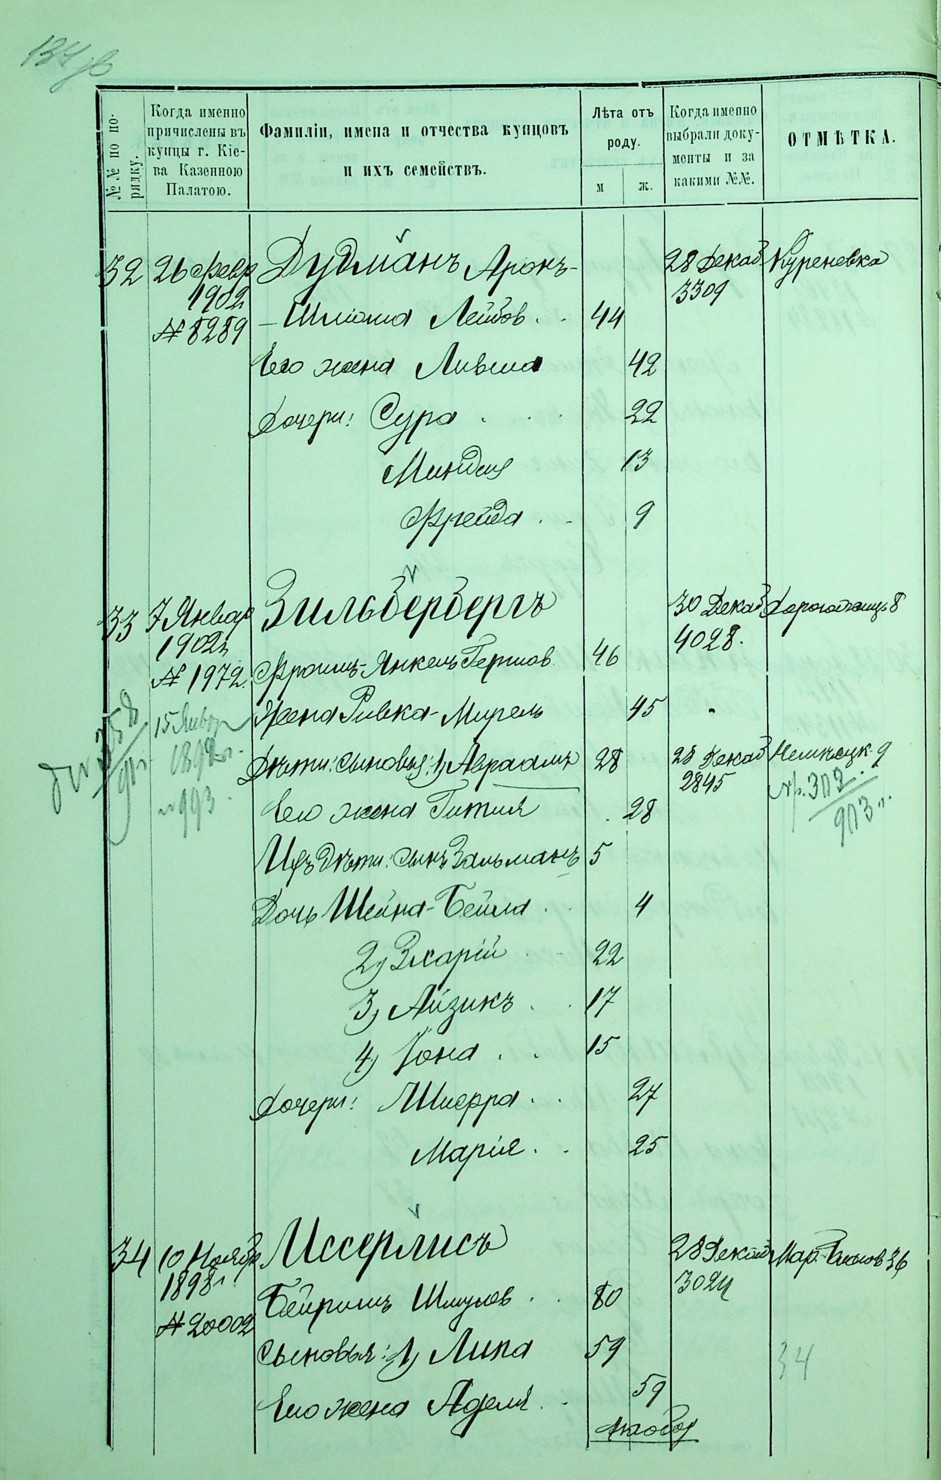 №№ по по-
рядку.
Когда именно
причислены въ
купцы г. Кіе-
ва Казенною
Палатою.
Фамиліи, имена и отчества купцовъ
и ихъ семействъ.
Лѣта отъ
роду.
м
ж.
Когда именно
выбрали доку-
менты и за
какими №№.
ОТМѢТКА.
32 26 Февр Дудманъ Аронъ- 28 Декаб Куреневка
1902 3309
№ 8289 -Шлиома Лейбов. 44
Его жена Ливша 42
Дочери: Сура 22
Миндля 13
Фрейда 9
33 7 Январ Зильбербергъ 30 Декаб Дорогожицк 8
1902 4028.
№ 1972. Фроимъ-Янкель Гершов 46
15 Январ Жена Ривка-Мирель 45
1892 г. Дѣти: сыновья: 1) Авраамъ 28 28 Декаб Немецк. 9
№ 993. 2845 303
Его жена Гитля 28 903 г.
Ихъ дѣти: сынъ Зальманъ 5
Дочь Шейна-Бейла 4
2) Зхарій 22
3) Айзикъ 17
4) Іона 15
Дочери: Шифра 27
Марія 25
34 10 Ноябр Иссерлисъ 28 Декаб 36
1898 г. 3024
№ 20002 Бейришъ Шмулев 80
Сыновья: 1) Липа 59 34
Его жена Аделя 59